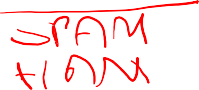 SPAM
HAM